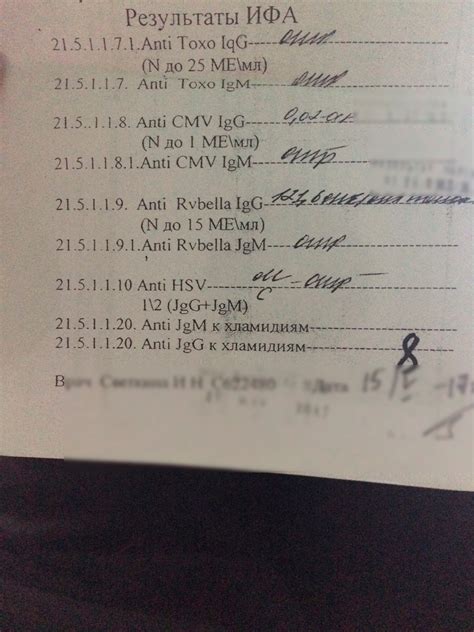 Результаты ИФА
21.5.1.1.7.1.Anti Toxo IqG---- отр
(N до 25 МЕ\мл)
21.5.1.1.7. Anti Toxo IgM---- отр
21.5..1.1.8. Anti CMV IgG----
(N до 1 МЕ\мл)
21.5.1.1.8.1.Anti CMV IgM---- отр
21.5.1.1.9. Anti Rvbella IgG----
(N до 15 МЕ\мл)
21.5.1.1.9.1.Anti Rvbella JgM---- отр
21.5.1.1.10 Anti HSV---- отр
1\2 (JgG+JgM)
21.5.1.1.20. Anti JgM к хламидиям----
21.5.1.1.20. Anti JgG к хламидиям----
Дата 15/V-17